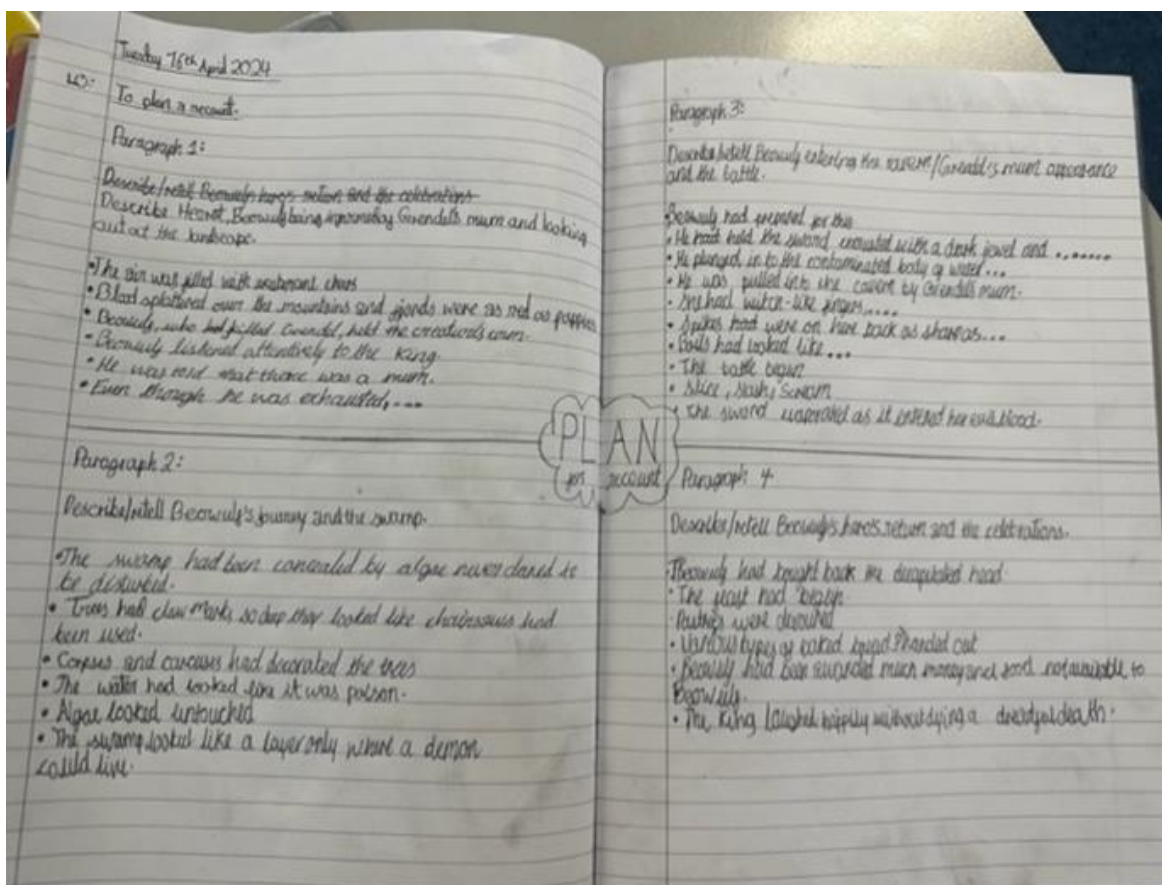 Tuesday 16th April 2024
LO:
To plan a recount.
Paragraph 1:
Describe/retell Beowulf's heros return and the celebrations
Describe Heorot, Beowulf being informed by Grendel's mum and looking
out at the landscape.
•The air was filled with exuberant cheers
•Blood splattered over the mountains and fjords were as red as poppies
•Beowulf, who had killed Grendel, held the creature's arm.
•Beowulf listened attentively to the King.
•He was told that there was a mum.
•Even though he was exhausted,....
Paragraph 2:
Describe/retell Beowulf's journey and the swamp.
•The swamp had been concealed by algae never dared to
be disturbed.
•Trees had claw marks so deep they looked like chainsaws had
been used.
•Corpses and carcases had decorated the trees
•The water had looked like it was poison.
•Algae looked untouched
•The swamp looked like a layer only where a demon
could live.
PLAN
for recount
Paragraph 3:
Describe/retell Beowulf entering the cavern/Grendel's mum appearance
and the battle.
Beowulf had prepared for this
•He had held the sword with a dark jewel and ........
•He plunged in to the contaminated body of water...
•He was pulled into the cavern by Grendel's mum.
•She had witch-like fingers....
•Spikes had were on here back as sharp as...
•Boils had looked like...
•The battle begun
•Slice, slash, scream
•The sword evaporated as it entered her evil blood.
Paragraph 4
Describe/retell Beowulf's heros return and the celebrations.
Beowulf had bought back the decapitated head
•The feast had begun
Poultries were devoured
•Various types of baked bread handed out
•Beowulf had been awarded much money and food not available to
Beowulf.
•The King laughed happily without dying a dreadful death.